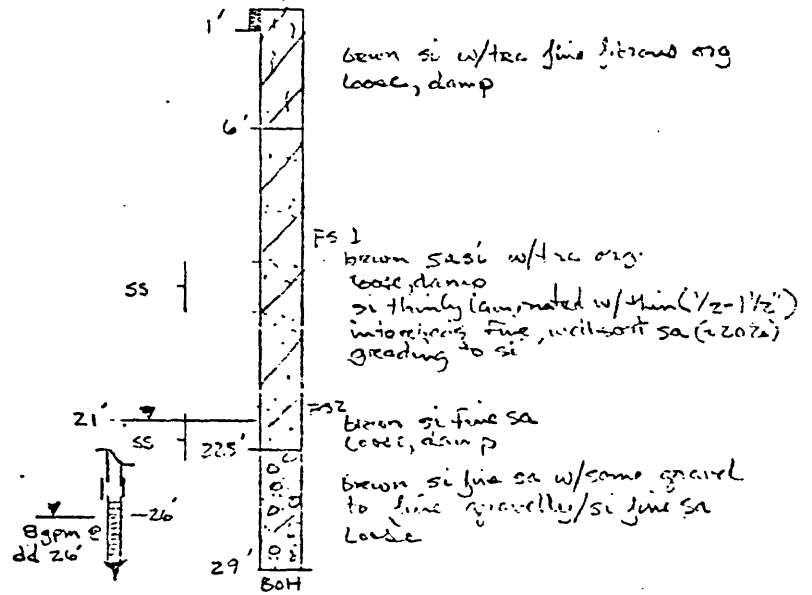 1'
brwn si w/trc fine fibrous org
loose, damp
6'
FS 1
brwn sasi w/trc org
loose, damp
SS
si thinly laminated w/thin (1/2-1 1/2")
interbeds fine, well sort sa (≈20%)
grading to si
FS2
21'
brwn si fine sa
loose, damp
SS
22.5'
brwn si fine sa w/some gravel
to fine gravelly/si fine sa
loose
26'
8 gpm @
dd 26'
29'
BOH